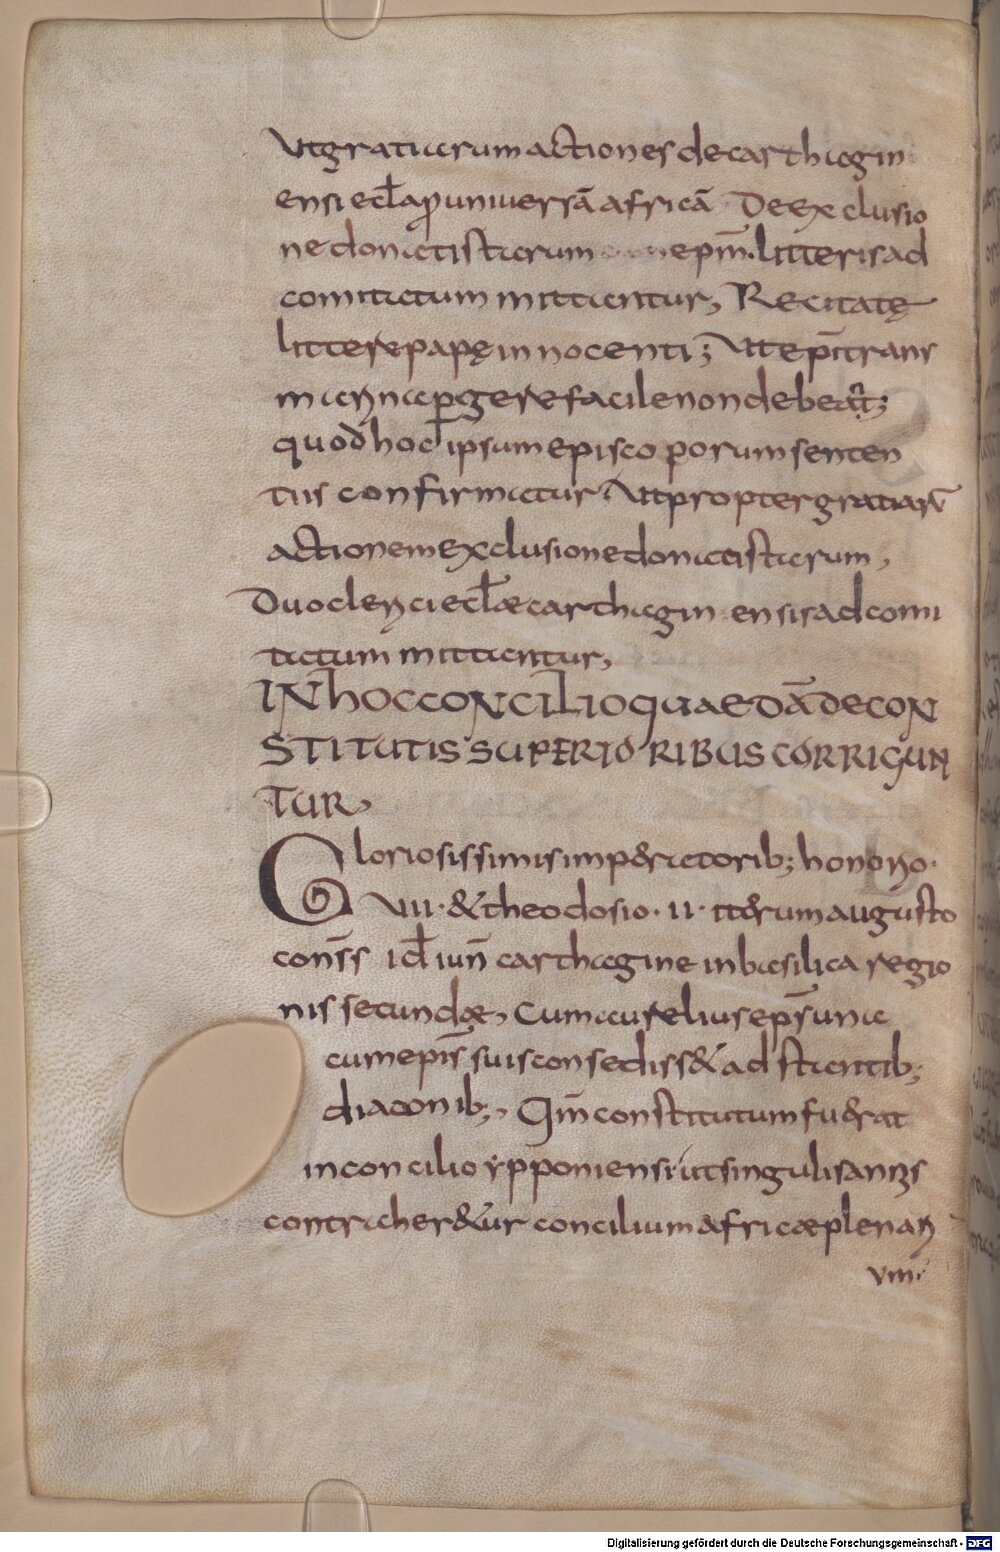 Ut gratiarum actiones de carthagin
ensi ecl̄a ꝑ universā africā De exclusio
ne donatistarum epīm. litteris ad
comitatum mittantur, Recitatę
litterę papę innocenti; Ut ep̄i trans
marina ꝑgere facile non debeant;
quod hoc ipsum episcoporum senten
tiis confirmatur. Ut propter gratiarū
actionem exclusione donatistarum,
Duo clerici ecl̄ae carthagin ensis ad comi
tatum mittantur,
IN hOC CONCILIO QUAEDĀ DE CON
STITUTIS SUPERIORIBUS CORRIGUN
TUR,
Gloriosissimis imperatorib; honorio.
VII. & theodosio. II. iterum augusto
cons̄s id̄ iun̄ carthagine in basilica regio
nis secundae, Cum aurelius ep̄s una
cum ep̄is suis consediss& adstantib;
diaconib;, Qm̄ constitutum fuerat
in concilio ypponiensi ut singulis annis
contraher&ur concilium africae plenari
VIII.
Digitalisierung gefördert durch die Deutsche Forschungsgemeinschaft - DFG